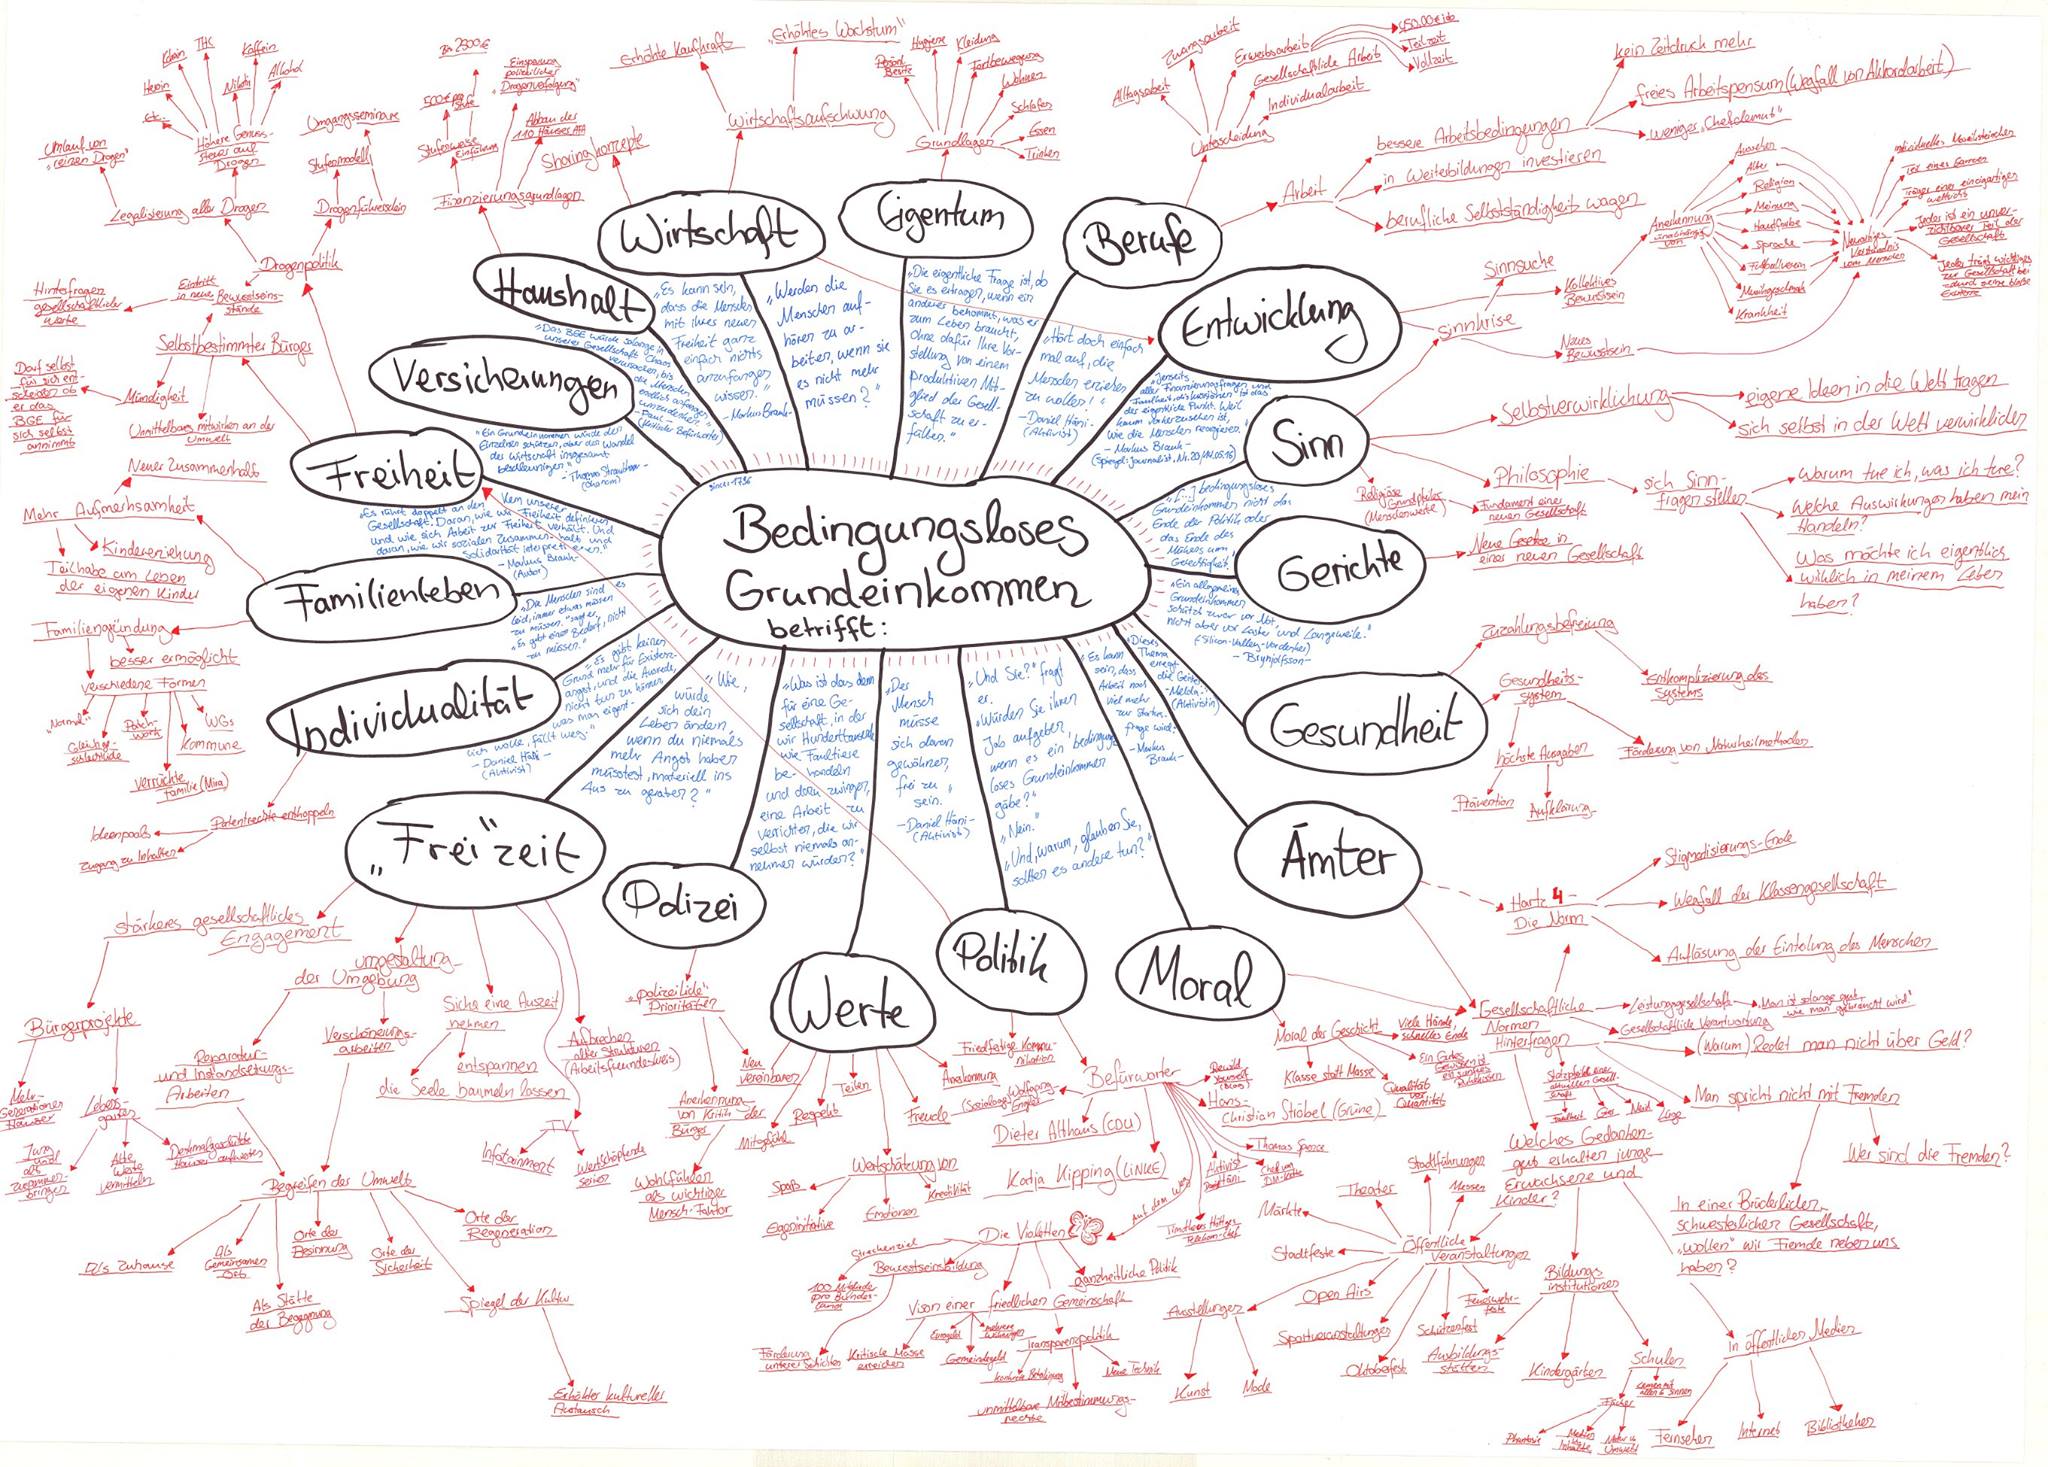 Bedingungsloses
Grundeinkommen
betrifft:
since: 1796
Wirtschaft
Eigentum
Berufe
Entwicklung
Sinn
Gerichte
Gesundheit
Ämter
Moral
Politik
Werte
Polizei
„Frei"zeit
Individualität
Familienleben
Freiheit
Versicherungen
Haushalt
Heroin
THC
Koffein
Nikotin
Alkohol
etc.
Höhere Genuss-
steuer auf
Drogen
Umlauf von
„reinen Drogen"
Legalisierung aller Drogen
Umgangsseminare
Stufenmodell
Drogenführerschein
Drogenpolitik
Hinterfragen
gesellschaftlicher
Werte
Eintritt
in neue Bewusstseins-
stände
Selbstbestimmter Bürger
Mündigkeit
Darf selbst
für sich ent-
scheiden ob
er das
BGE für
sich selbst
annimmt
Unmittelbares mitwirken an der
Umwelt
Bis 2500€
500€ pro
Stufe
Stufenweise
Einführung
Einsparung
polizeilicher
„Drogenverfolgung"
Abbau der
110 Häuser AfA
Finanzierungsgrundlagen
Sharingkonzepte
Erhöhte Kaufkraft
„Erhöhtes Wachstum"
Wirtschaftsaufschwung
Hygiene
Kleidung
Fortbewegung
Wohnen
Schlafen
Essen
Trinken
Grundlagen
Alltagsarbeit
Zwangsarbeit
Erwerbsarbeit
Gesellschaftliche Arbeit
Individualarbeit
Unterscheidung
450,00€ Job
Teilzeit
Vollzeit
Arbeit
bessere Arbeitsbedingungen
in Weiterbildungen investieren
berufliche Selbstständigkeit wagen
kein Zeitdruck mehr
freies Arbeitspensum (Wegfall von Akkordarbeit)
weniger „Chefdemut"
Sinnsuche
Sinnkrise
Kollektives
Bewusstsein
Neues
Bewusstsein
Anerkennung
unabhängig
von
Aussehen
Alter
Religion
Meinung
Hautfarbe
Sprache
Fußballverein
Musikgeschmack
Krankheit
Neuartiges
Verständnis
vom Menschen
Individuelles Mosaiksteinchen
Teil eines Ganzen
Träger einer einzigartigen
Weltsicht
Jeder ist ein unver-
zichtbarer Teil der
Gesellschaft
Jeder trägt wichtiges
zur Gesellschaft bei
durch seine bloße
Existenz
Selbstverwirklichung
eigene Ideen in die Welt tragen
sich selbst in der Welt verwirklichen
Philosophie
Fundament einer
neuen Gesellschaft
Religiöse
Grundpfeiler
(Menschenwerte)
sich Sinn-
fragen stellen
Warum tue ich, was ich tue?
Welche Auswirkungen haben mein
Handeln?
Was möchte ich eigentlich
wirklich in meinem Leben
haben?
Neue Gesetze in
einer neuen Gesellschaft
Zuzahlungsbefreiung
Gesundheits-
system
Entkomplizierung des
Systems
höchste Ausgaben
Förderung von Naturheilmethoden
Prävention
Aufklärung
Hartz 4 -
Die Norm
Stigmatisierungs-Ende
Wegfall der Klassengesellschaft
Auflösung der Einteilung des Menschen
Gesellschaftliche
Normen
Hinterfragen
Leistungsgesellschaft
„Man ist solange gut
wie man gebraucht wird"
Gesellschaftliche Verantwortung
(Warum) Redet man nicht über Geld?
Man spricht nicht mit Fremden
Wer sind die Fremden?
In einer Brüderlichen,
schwesterlichen Gesellschaft,
„wollen" wir Fremde neben uns
haben?
In öffentlichen Medien
Fernsehen
Internet
Bibliotheken
Stützpfeiler einer
aktuellen Gesell-
schaft
Faulheit
Gier
Neid
Lüge
Welches Gedanken-
gut erhalten junge
Erwachsene und
Kinder?
Öffentliche
Veranstaltungen
Stadtführungen
Messen
Theater
Märkte
Stadtfeste
Open Airs
Ausstellungen
Kunst
Mode
Sportveranstaltungen
Oktoberfest
Schützenfest
Feuerwehr-
feste
Bildungs
institutionen
Ausbildungs-
stätten
Kindergärten
Schulen
Lernen mit
allen 6 Sinnen
Fächer
Phantasie
Medien
Inhalte
Natur &
Umwelt
Moral der Geschicht
Viele Hände,
schnelles Ende
Ein Gutes
Gewissen ist
ein sanftes
Ruhekissen
Klasse statt Masse
Qualität
vor
Quantität
Friedfertige Kommu-
nikation
Befürworter
(Soziologe) Wolfgang
Engler
Dieter Althaus (CDU)
Katja Kipping (LINKE)
Hans-
Christian Ströbel (Grüne)
Thomas Spence
Aktivist
Daniel Häni
Chef von
DM-Kette
Timotheus Höttges
Telekom-Chef
Auf dem Weg
Die Violetten
Streckenziel
100 Mitglieder
pro Bundes-
land
Bewusstseinsbildung
ganzheitliche Politik
Vision einer friedlichen Gemeinschaft
Förderung
unterer Schichten
Kritische Masse
erreichen
Eurogeld
mehrere
Währungen
Gemeindegeld
Transparenzpolitik
konkrete Beteiligung
Neue Technik
unmittelbare Mitbestimmungs-
rechte
Mitgefühl
Respekt
Teilen
Freude
Anerkennung
Wertschätzung von
Spaß
Eigeninitiative
Emotionen
Kreativität
„polizeiliche"
Prioritäten
Neu
vereinbaren
Anerkennung
von Kritik der
Bürger
Wohlfühlen
als wichtiger
Mensch-Faktor
stärkeres gesellschaftliches
Engagement
Bürgerprojekte
Mehr-
Generationen
Häuser
Jung
und
alt
zusammen-
bringen
Lebens-
garten
Alte
Werte
vermitteln
Denkmalgeschützte
Häuser aufwerten
umgestaltung
der Umgebung
Reparatur-
und Instandsetzungs-
Arbeiten
Verschönerungs-
arbeiten
Begreifen der Umwelt
Als Zuhause
Als
Gemeinsamen
Ort
Als Stätte
der Begegnung
Orte der
Besinnung
Orte der
Sicherheit
Orte der
Regeneration
Spiegel der Kultur
Erhöhter kultureller
Austausch
Sich eine Auszeit
nehmen
entspannen
die Seele baumeln lassen
Aufbrechen
alter Strukturen
(Arbeitsfreundeskreis)
TV
Infotainment
Wertschöpfende
Serien
Patentrechte entkoppeln
Ideenpools
Zugang zu Inhalten
Neuer Zusammenhalt
Mehr Aufmerksamkeit
Kindererziehung
Teilhabe am Leben
der eigenen Kinder
Familiengründung
besser ermöglicht
verschiedene Formen
„Normal"
Gleichge-
schlechtliche
Patch-
work
Verrückte
Familie (Mira)
Kommune
WGs
„Es kann sein,
dass die Menschen
mit ihrer neuen
Freiheit ganz
einfach nichts
anzufangen
wissen."
- Markus Brauck-
„Werden die
Menschen auf-
hören zu ar-
beiten, wenn sie
es nicht mehr
müssen?"
„Die eigentliche Frage ist, ob
Sie es ertragen, wenn ein
anderer bekommt, was er
zum Leben braucht,
Ohne dafür Ihre Vor-
stellung von einem
produktiven Mit-
glied der Gesell-
schaft zu er-
füllen."
„Hört doch einfach
mal auf, die
Menschen erziehen
zu wollen!"
- Daniel Häni-
(Aktivist)
„Jenseits
aller Finanzierungsfragen und
Faulheitsdiskussionen ist das
der eigentliche Punkt. Weil
kaum vorherzusehen ist,
wie die Menschen reagieren."
- Markus Brauck -
(Spiegel-Journalist, Nr. 20/14.05.16)
„[...] bedingungsloses
Grundeinkommen nicht das
Ende der Politik oder
das Ende des
Mühens um
Gerechtigkeit.
„Ein allgemeines
Grundeinkommen
schützt zwar vor Not,
nicht aber vor Laster und Langeweile."
(Silicon-Valley-Vordenker)
- Brynjolfsson-
„Dieses
Thema
erregt
die Geister"
(Aktivistin)
„Es kann
sein, dass
Arbeit noch
viel mehr
zur Status-
frage wird."
- Markus
Brauck-
„Und Sie?" fragt
er.
„Würden Sie ihren
Job aufgeben,
wenn es ein bedingungs-
loses Grundeinkommen
gäbe?"
„Nein."
„Und, warum, glauben Sie,
sollten es andere tun?"
„Der
Mensch
müsse
sich daran
gewöhnen,
frei zu
sein."
- Daniel Häni-
(Aktivist)
„Was ist das denn
für eine Ge-
sellschaft, in der
wir Hunderttausende
wie Faultiere
be-handeln
und dazu zwingen,
eine Arbeit zu
verrichten, die wir
selbst niemals an-
nehmen würden?"
„Wie,
würde
sich dein
Leben ändern,
wenn du niemals
mehr Angst haben
müsstest, materiell ins
Aus zu geraten?"
„Es gäbe keinen
Grund mehr für Existenz-
angst, und die Ausrede,
nicht tun zu können,
was man eigent-
lich wolle, fällt weg."
- Daniel Häni -
(Aktivist)
„Die Menschen sind es
leid, immer etwas müssen
zu müssen." sagt er,
„Es gibt einen Bedarf, nicht
zu müssen."
„Es rührt doppelt an den Kern unserer
Gesellschaft: Daran, wie wir Freiheit definieren
und wie sich Arbeit zur Freiheit verhält. Und
daran, wie wir sozialen Zusammenhalt und
Solidarität interpretieren."
- Markus Brauck-
(Autor)
„Ein Grundeinkommen würde den
Einzelnen schützen, aber den Wandel
der Wirtschaft insgesamt
beschleunigen."
- Thomas Straubhaar-
(Ökonom)
„Das BGE würde solange in
unserer Gesellschaft Chaos
verursachen, bis
die Menschen
endlich anfangen
umzudenken."
(Kritischer Befürworter)